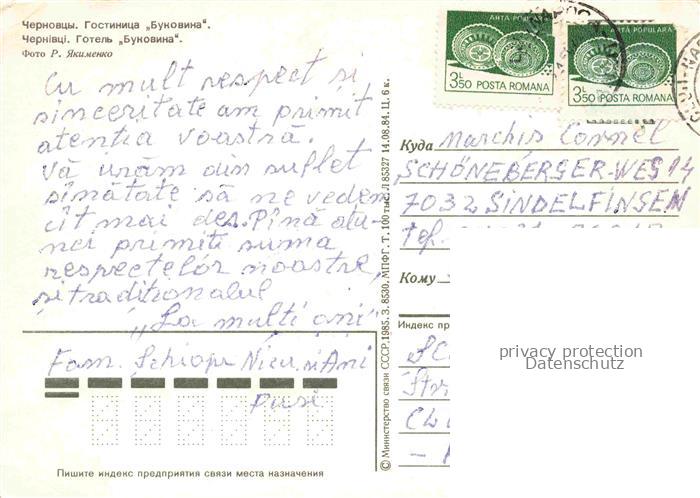 Черновцы. Гостиница „Буковина".
Чернівці. Готель „Буковина".
Фото Р. Якименко
Cu mult respect și
sinceritate am primit
atenția voastră.
Vă urăm din suflet
sănătate să ne vedem
cît mai des. Pînă atu-
nci primiți suma
respectelor noastre,
și tradiționalul
„La mulți ani"
Fam. Schiopu Nicu, și Ani
Пишите индекс предприятия связи места назначения
© Министерство связи СССР, 1985. З. 8530. МПФГ. Т. 100 тыс. Л 85327 14.08.84. Ц. 6 к.
ARTA POPULARA
3L50 POSTA ROMANA
ARTA POPULARA
3L50 POSTA ROMANA
CLUJ-NAPOCA
Куда Marchis Cornel
SCHÖNEBERGER-WEG 14
7032 SINDELFINGEN
Tel.
Кому
Индекс пр
Str
privacy protection
Datenschutz